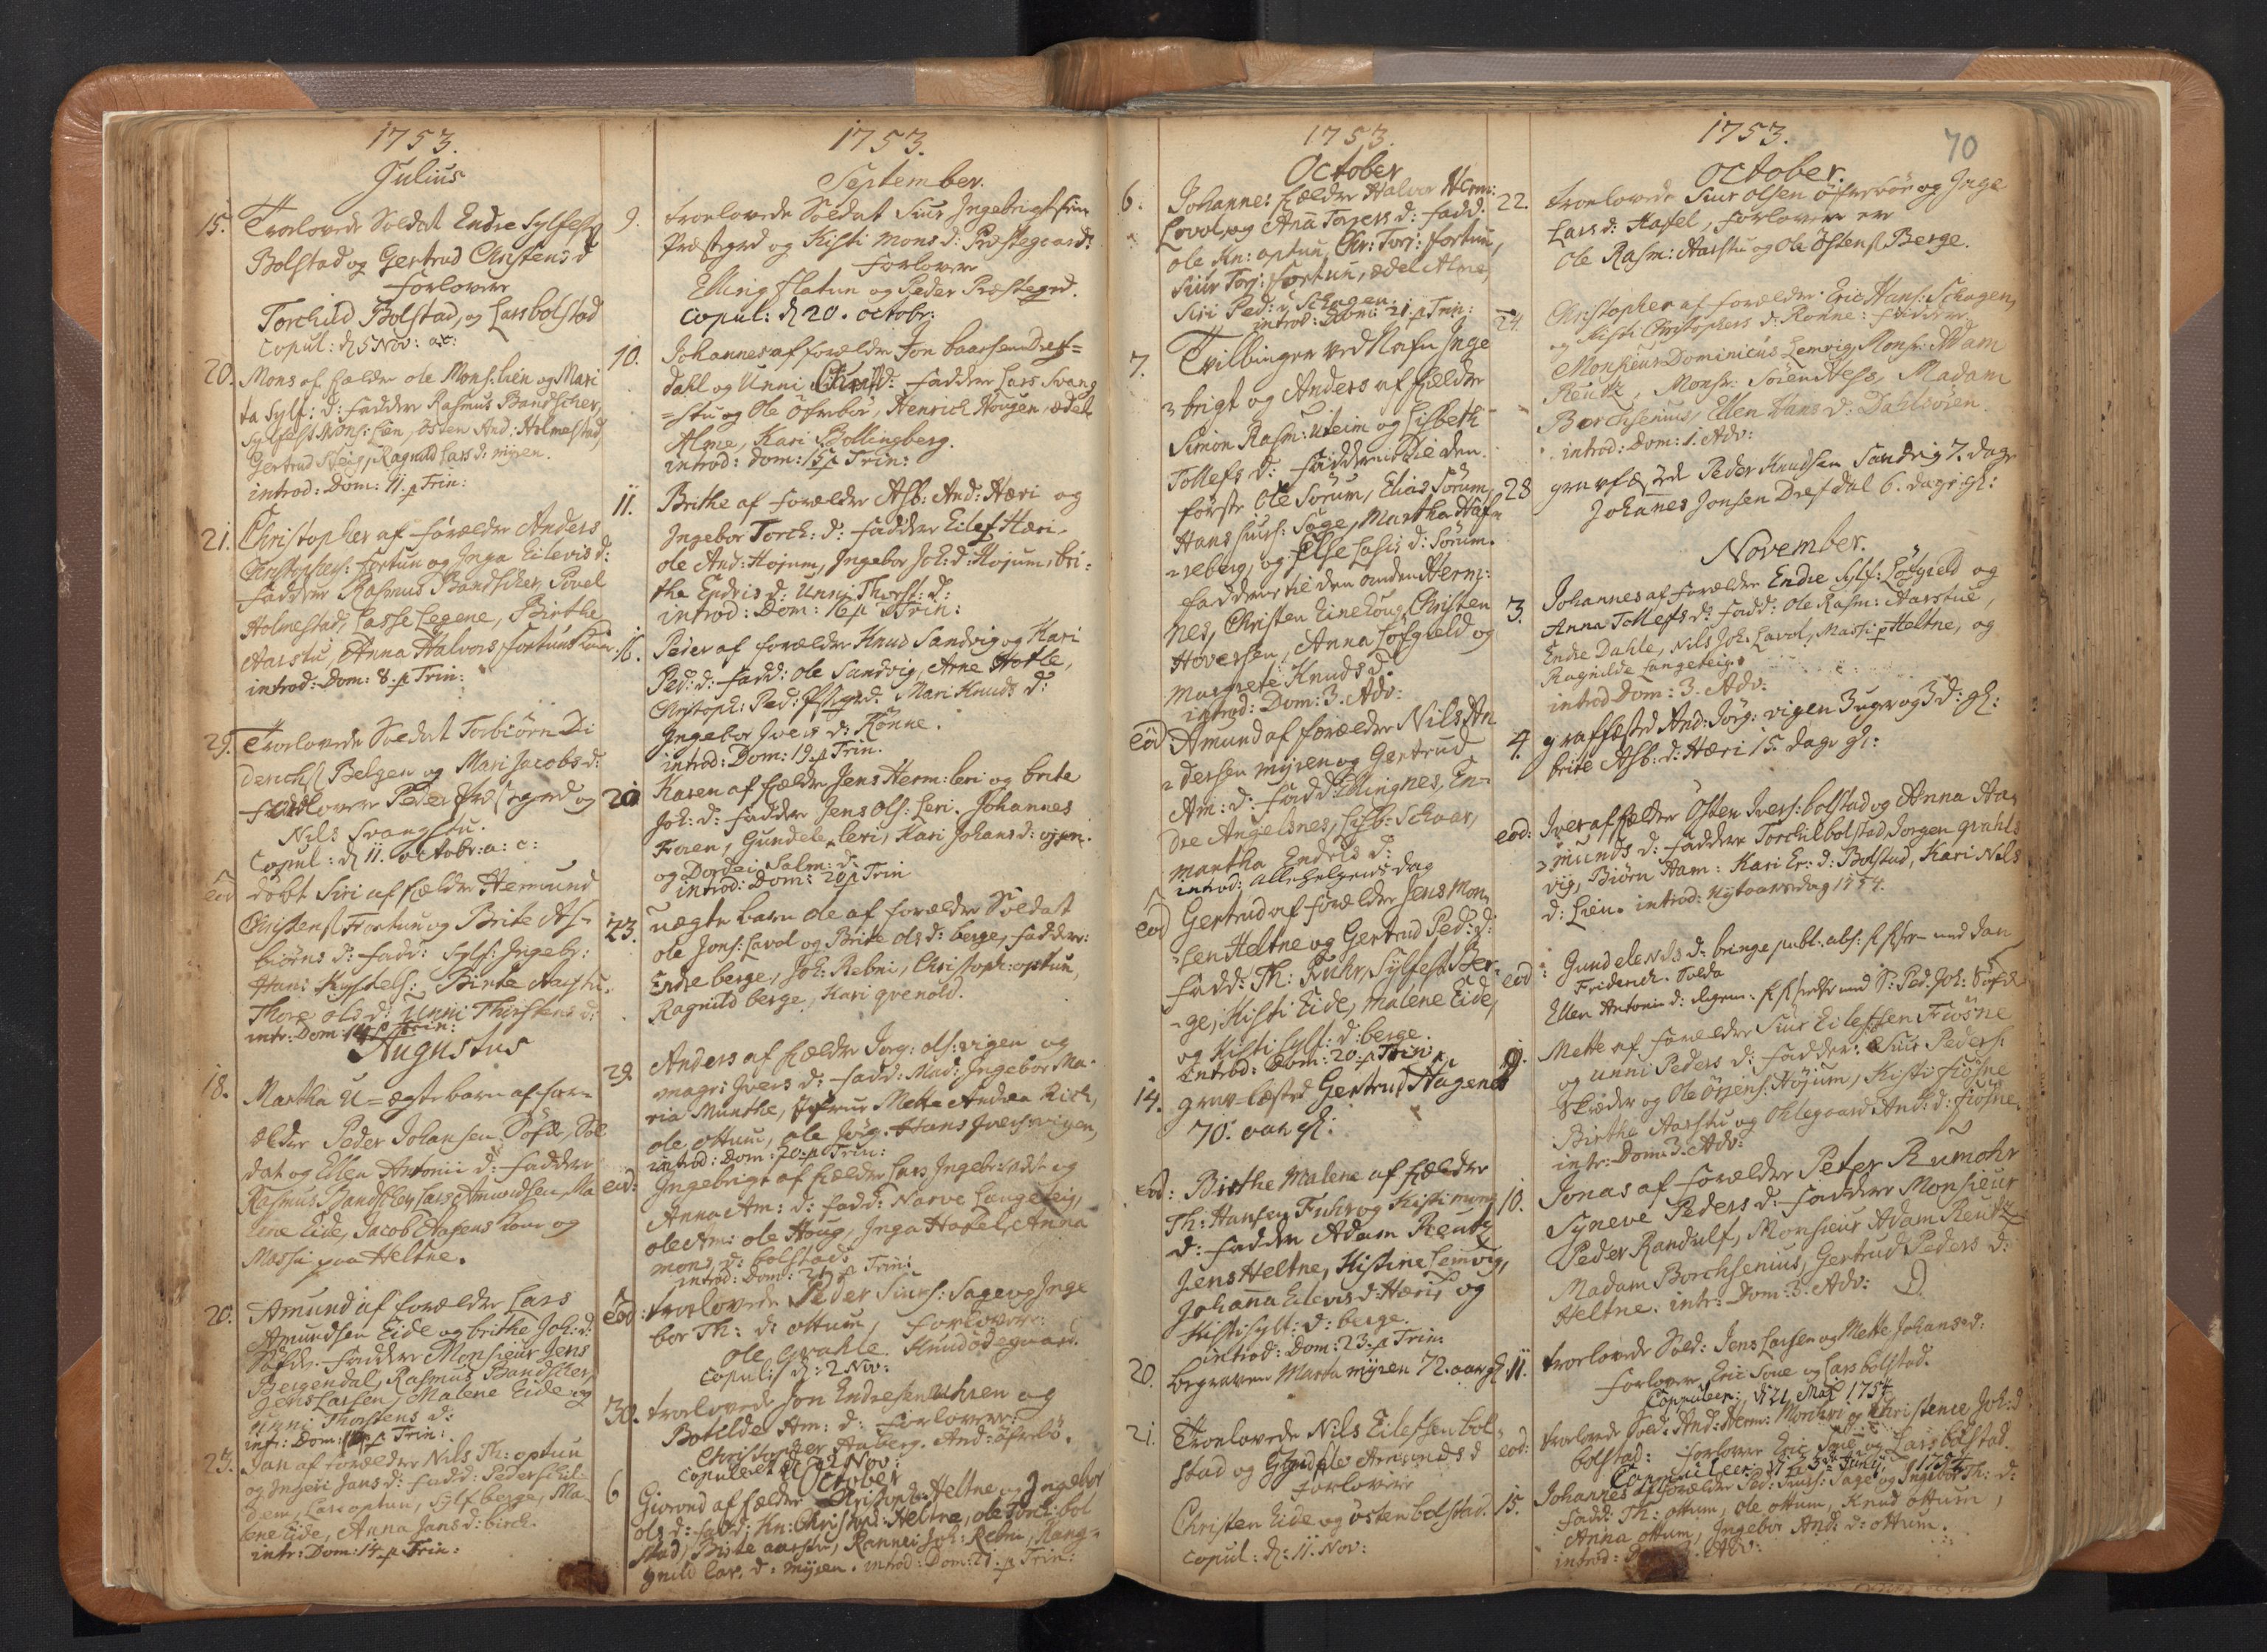 1753.
Julius
15. Troelovede Soldat Endre Sylfest
Bolstad og Gertrud Christens d
Forlovere
Torchild Bolstad, og Lars bolstad
Copul: d 5 Nov: a: c:
20. Mons af Fælder ole Mons: Lien og Mari
ta Sylf: d: Faddere Rasmus Bandscher,
Sylfest Mons: Lien, Østen And: Holmestad,
Gertrud Steig, Ragnild Lars d: myren.
introd: Dom: 11. p Trin:
21. Christopher af Forældre Anders
Christophers: Fortun og Inga Eilevis d:
Faddere Rasmus Bandscher, Povel
Holmestad, Lasse Legene, Birthe
Aarstu, Anna Halvors, Fortuns Kone.
introd: Dom: 8. p Trin:
29. Troelovede Soldat Torbiørn Di
derichs Belgen og Mari Jacobs d:
Forlovere Peder Præstegrd og
Nils Svangstu.
Copul: d 11. octobr: a: c:
eod døbt Siri af Fældre Hermund
Christens Fortun og Brite As-
biørns d: Fadd: Sylf: Ingebr:
Hans Kystels: Birte Aarstu.
Thore ols d: Unni Thorstens d:
intr: Dom 14 p Trin:
Augustus
18. Martha U-ægte barn af For-
ældre Peder Johansen Søfde, Sol
dat og Ellen Antonii d: Faddere
Rasmus Bandscher, Lars Amundsen, Ma
lene Eide, Jacob Kone og
Massi paa Heltne.
20. Amund af Forældre Lars
Amundsen Eide og brithe Joh: d:
Søfde. Faddere Monsieur Jens
Bergendal, Rasmus Bandscher,
Jens Larsen, Malene Eide og
Unni Thorstens d:
intr: Dom: p Trin:
23. Jan af Forældre Nils Th: optun
og Ingeri Jans d: Fadd: Peder Schil-
dem, Lars optun, Sylf berge, Ma-
lene Eide, Anna Jans d: birch.
intr: Dom: 14. p Trin:
1753.
September.
9. Troelovede Soldat Siur Ingebrigtsen
Præstegrd og Kisti Mons d: Præstegaard:
Forlovere
Elling Flatun og Peder Præstegrd.
Copul: d 20. octobr:
10. Johannes af Forældre Jon baarsen Dref-
dahl og Unni d: Faddere Lars Svang
-stu og Ole Øfrebø, Henrich Hougen, ædel
Alme, Kari Bollingberg.
introd: Dom: 15 p Trin:
11. Brithe af Forældre Asb: And: Hæri og
Ingebor Torch: d: Faddere Eilef Hæri,
ole And: Højum, Ingebor Joh: d: Højum, bri-
the Endris d: Unni Thorst: d:
introd: Dom: 16 p Trin:
16. Peder af Forældre Knud Sandvig og Kari
Ped: d: Fadd: Ole Sandvig, Arne Hotle,
Christoph: Ped: Pstgrd. Mari Knuds d:
Ingebor Ivers d: Rønne.
introd: Dom: 19. p Trin.
20 Karen af Fældre Jens Herm: leri og brite
Joh: d: Faddere Jens Ols: Leri. Johannes
Foren, Gundele leri, Kari Johans d: vigen.
og Dordei Salm: d:
introd: Dom: 20 p Trin
23. Uægte barn ole af Forældre Soldat
ole Jons: Lavol og Brite ols d: berge, Faddere:
Endre berge, Joh: Rebni, Christoph: optun,
Ragnild berge, Kari qvenold.
29. Anders af Fældre Jorg: ols: vigen og
magri: Ivers d: Fadd: Mad: Ingebor Ma-
ria Munthe, Jfrue Mette Andrea Rich,
ole ottum, ole Jørg. Hans Ivers: vigen,
introd: Dom: 20: p Trin:
eod: Ingebrigt af Fældre Lars Ingebr: og
Anna Am: d: Fadd: Narve Langeteig,
ole Am: ole Houg, Inga Hafel, Anna
mons d: bolstad.
introd: Dom: 21 p Trin:
eod: Troelovede Peder Siurs: Sage og Inge
bor Th: d: ottum, Forlovere:
Ole qvahle. Knud ødegaard.
Copul: d: 2 Nov:
30. Troelovede Jon Endresen Uhren og
Botilde Am: d: Forlovere:
Christopher Aaberg. And: Øfrebø.
Copuleret d 2 Nov:
October
6 Giørond af Fældre Christoph: Heltne og Ingebor
ols d: Fadd: Kn: Christoph: Heltne, ole Torch: bol
stad, Birte aarstu, Rannei Joh: Rebni, Rang-
gnild Lar. d: myren. introd: Dom: 21. p Trin:
1753.
October
6. Johannes Fældre Halvor Herm:
Lovol, og Anna Torgers d: Fadd:
ole Kn: optun, Chr: Torj: Fortun,
Siur Torj: Fortun, ædel Alme,
Siri Ped: d Schagen.
introd: Dom: 21. p Trin:
7. Tvillinger ved Nafn Inge
brigt og Anders af Fældre
Simon Rasm: Uteim og Lisbeth
Tollefs d: Faddere til den
første Ole Sørum, Elias Sørum,
Hans Siurs: Sage, Martha Haf-
reberg, og Else Lasis d: Sørum.
Faddere til den anden Herm:
nes, Christen Eine Houg, Christen
Hoversen, Anna Løfgield og
Margrete Knuds d:
introd: Dom: 3. Adv:
eod Amund af Forældre Nils An
dersen myren og Gertrud
Am: d: Fadd: Ellingnes, En-
dre Angelsnes, Lisb: Schaar,
Martha Endrids d:
introd: Allehelgens dag
eod Gertrud af Forældre Jens Mon-
sen Heltne og Gertrud Ped: d:
Fadd: Th: Fuhr, Sylfest Ber-
ge, Kisti Eide, Malene Eide,
og Kisti Sylf: d: berge.
Introd: Dom: 20. p Trin
14. grav-fæsted Gertrud Hagenes
70. aar gl:
eod: Birthe Malene af Fældre
Th: Hansen Fuhr og Kisti mons
d: Faddere Adam Reutz,
Jens Heltne, Kistine Lemvig,
Johanna Eilevis d: Hæri, og
Kisti Sylf: d: berge.
introd: Dom: 23. p Trin:
20. begraven Marta myren 72. aar gl
21. Troelovede Nils Eilefsen bol-
stad og Gundele Amunds d
Forlovere
Christen Eide og østen bolstad.
Copul: d: 11. Nov:
70
1753.
October.
22. Troelovede Siur Olsen Øfrebøe og Inge
Lars d: Hafel, Forlovere ere
Ole Rasm: Aarstu og Ole Østens Berge.
24. Christopher af Forældre Eric Hans: Schagen,
og Kisti Christophers d: Rønne: Faddere
Monsieur Dominicus Lemvig, Monsr: Adam
Reutz, Monsr: Søren Hess, Madam
Borchsenius, Ellen Hans d: Dahlsøren.
introd: Dom: 1. Adv:
28 gravfæstede Peder Knudsen Sandvig 7. dage
Johannes Jonsen Drefdal 6. dage gl:
November.
3. Johannes af Forældre Endre Sylf: Løfgield og
Anna Tollefs d: Fadd: Ole Rasm: Aarstue,
Endre Dahle, Nils Joh: Lavol, Massi p Heltne, og
Ragnilde Langeteig.
introd Dom: 3. Adv:
4. graffæsted And: Jørg: vigen 3 uger og 3 d: gl:
brite Asb: d: Hæri 15. dage gl:
eod: Iver af Fældre Østen Ivers: bolstad og Anna Aa-
munds d: Faddere Torchil bolstad, Jorgen qvahls
vig, Biørn Aam: Kari Er: d: Bolstad, Kari Nils
d: Lien. introd: Nytaarsdag 1754.
eod: Gundele Nils d: bringe publ: abs:
Friderich. Tolda
Ellen Antonii d: ligem: Ped: Joh: Søfde
9. Mette af Forældre Siur Eilefsen Fiøsne
og Unni Peders d: Faddere: Siur Peders:
Skreder og Ole Ørjens: Højum, Kisti Fiøsne
Birthe Aarstu og Ohlegaard And: d: Fiøsne.
intr: Dom: 3. Adv:
10. Jonas af Forældre Peter Rumohr
Syneve Peders d: Faddere Monsieur
Peder Randulf, Monsieur Adam Reutz
Madam Borchsenius, Gertrud Peders d:
Heltne. intr: Dom: 3. Adv:
11. Troelovede Sold: Jens Larsen og Mette Johans d:
Forlovere Eric Sone og Lars bolstad.
Coppuleer: d 21 Maj 1754
eod: Troelovede Sold: And: Herm: og Christence Joh: d
bolstad: Forlovere Eric Sone og Lars bolstad.
Coppuleer: d Junij 1754.
15. Johannes af Forældre Ped: Siurs: Sage og Ingebor Th: d:
Fadd: Th: ottum, Ole ottum, Knud ottum,
Anna ottum, Ingebor And: d: ottum.
introd: Adv: